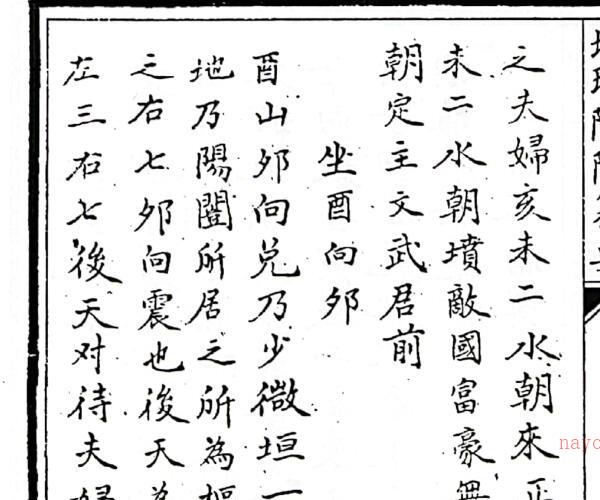 之夫婦亥未二水朝來正
未二水朝墳敵國富豪無
朝定主文武君前
坐酉向夘
酉山夘向兌乃少微垣一
地乃陽闔所居之所為
之右七夘向震也後天為
左三右七後天对待夫婦
nayo